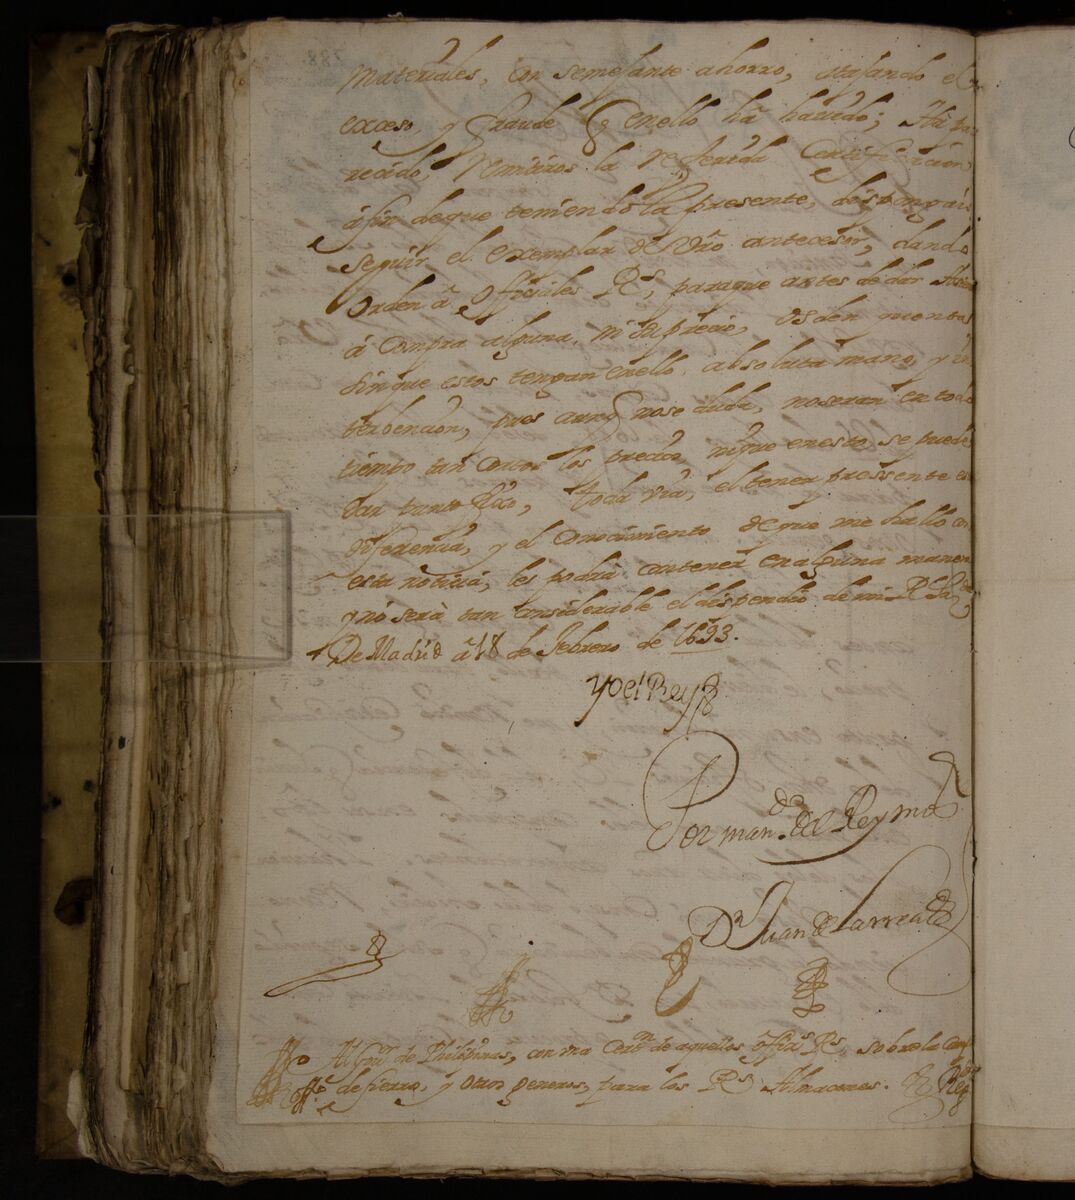 materiales, con semejante ahorro, atajando el
exceso y fraude q̃ en ello ha havido; Ha pa-
recido, remitiros la referida Certificacion,
a fin de que teniendola presente, dispongais
seguir el exemplar de vr̃o antecesor, dando
orden a Ofiçiales Rs, para que antes de dar
a compra alguna, ni de precio, os den quenta,
sin que estos tengan en ello, absoluta mano, y in-
terbencion, pues aunq̃ no se duda, no seran en todo
tiempo tan cortos los precios, ni que en esto se puede
dar punto fixo, toda via, el tener pressente esta
diferencia, y el conocimiento de que me hallo con
esta notiçia, les podra contener en alguna manera
y no será tan considerable el dispendio de mi Rl Hazda,
De Madrid a 18 de febrero de 1693.
Yo el Rey
Por mando del Rey nr̃o sr
Dn Juan de Larrea
Al Govr de Philipinas, con una Certon de aquellos offizs Rs sobre la compra
de fierro, y otros generos, para los Rs Almacenes.